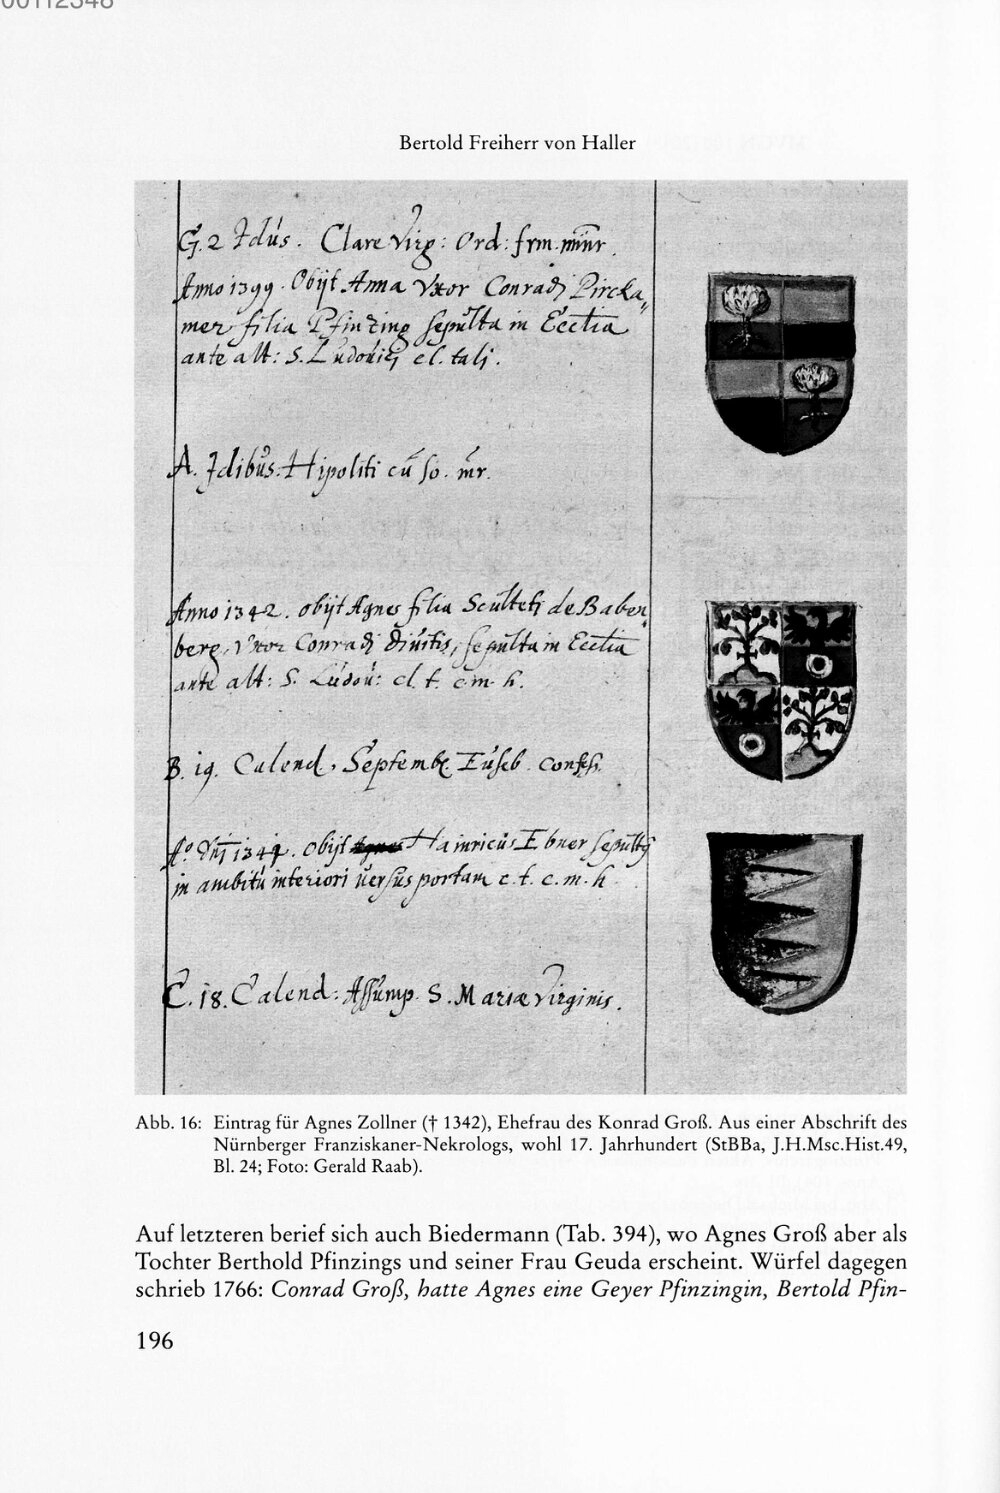 00112348
Bertold Freiherr von Haller
G. 2 Idus. Clare Virg: Ord: frm. minr.
Anno 1399. Obijt Anna Vxor Conradi Pircka„
mer filia Pfinzing sepulta in Ecctia
ante alt: S. Ludouici cl. tali.
A. Idibus. Hipoliti cu so. mr.
Anno 1342. obijt Agnes filia Sculteti de Baben„
berg, Vxor Conradi Diuitis, sepulta in Ecctia
ante alt: S. Ludou: cl. t. c. m. h.
B. 19. Calend, Septemb. Euseb. confess.
Ao Dni 1344. obijt Hainricus Ebner sepultg
in ambitu interiori versus portam c. t. c. m. h.
C. 18. Calend: Assump. S. Mariæ Virginis.
Abb. 16: Eintrag für Agnes Zollner († 1342), Ehefrau des Konrad Groß. Aus einer Abschrift des
Nürnberger Franziskaner-Nekrologs, wohl 17. Jahrhundert (StBBa, J.H.Msc.Hist.49,
Bl. 24; Foto: Gerald Raab).
Auf letzteren berief sich auch Biedermann (Tab. 394), wo Agnes Groß aber als
Tochter Berthold Pfinzings und seiner Frau Geuda erscheint. Würfel dagegen
schrieb 1766: Conrad Groß, hatte Agnes eine Geyer Pfinzingin, Bertold Pfin-
196